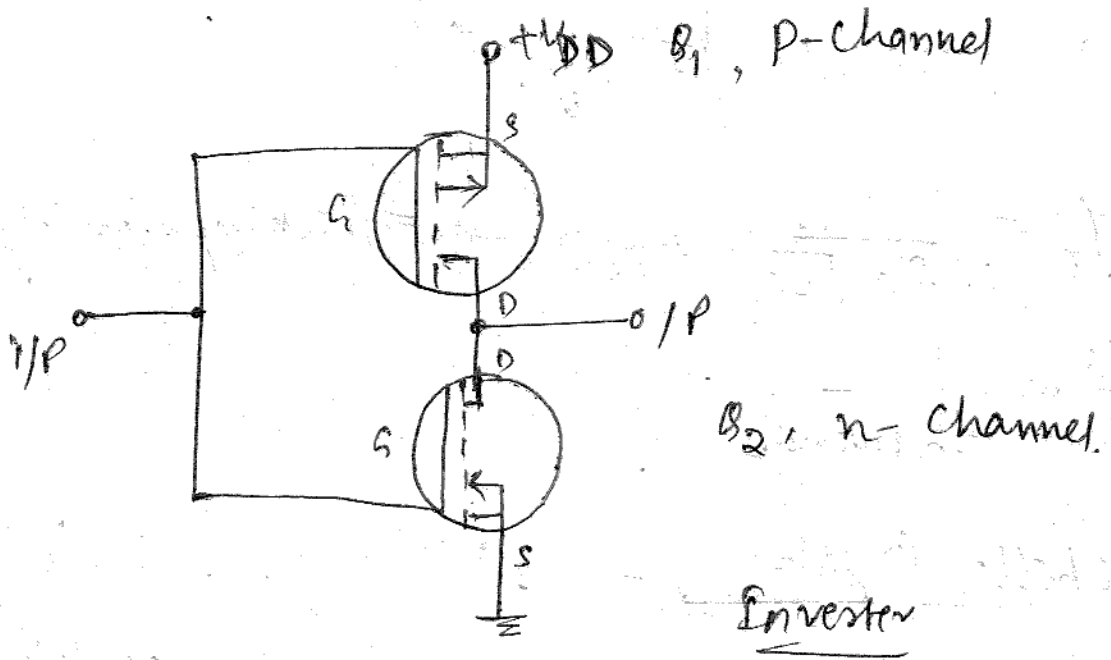 +VDD Q1, P-Channel
S
G
D
I/P
O/P
D
G
Q2, n-Channel.
S
Inverter